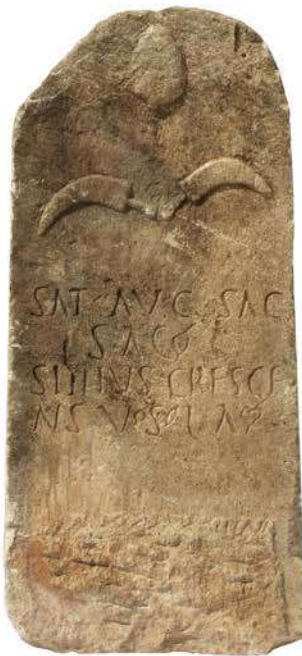 SAT AVG SAC
SACG
SITTIVS CRESCE
NS V S L A